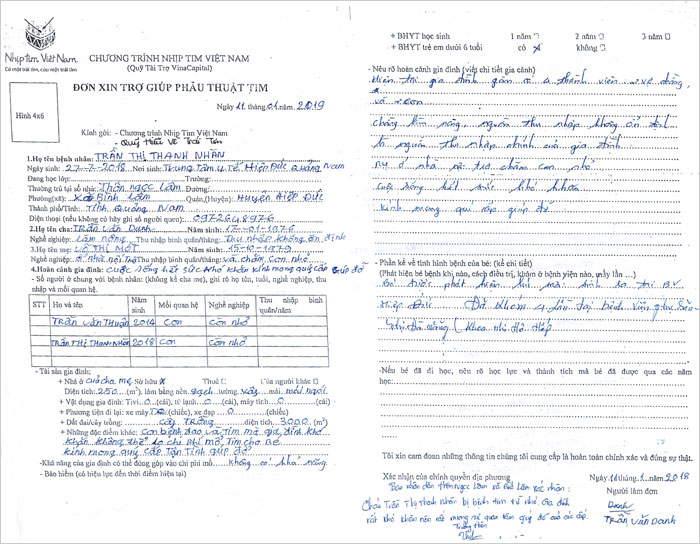 Nhịp Tim Việt Nam
Có một trái tim, cứu một trái tim
CHƯƠNG TRÌNH NHỊP TIM VIỆT NAM
(Quỹ Tài Trợ VinaCapital)
ĐƠN XIN TRỢ GIÚP PHẪU THUẬT TIM
Ngày 11 tháng 01 năm 2019
Hình 4x6
Kính gửi: - Chương trình Nhịp Tim Việt Nam
- Quỹ
1.Họ tên bệnh nhân: TRẦN THỊ THANH NHÀN
Ngày sinh: 27-7-2018 Nơi sinh: Trung tâm y tế, Hiệp Đức Quảng Nam
Đang học lớp: Trường:
Thường trú tại số nhà: Thôn ngọc Lâm Đường:
Phường(xã): Xã Bình Lâm Quận,(Huyện): Huyện Hiệp Đức
Thành phố/Tỉnh: Tỉnh Quảng Nam
Điện thoại (nếu không có hãy ghi số người quen): 0972648976
2.Họ tên cha: Trần Văn Danh Năm sinh: 17-01-1976
Nghề nghiệp: Làm nông Thu nhập bình quân/tháng: Thu nhập không ổn định
3.Họ tên mẹ: VÕ THỊ MỘT Năm sinh: 15-10-1979
Nghề nghiệp: Ở nhà nội trợ Thu nhập bình quân/tháng: và chăm con nhỏ
4.Hoàn cảnh gia đình: cuộc sống hết sức khó khăn kính mong quý cấp giúp đỡ
- Số người ở chung với bệnh nhân: (không kể cha mẹ), ghi rõ họ tên, tuổi, nghề nghiệp, thu
nhập và mối quan hệ.
STT Họ và tên Năm sinh Mối quan hệ Nghề nghiệp Thu nhập bình quân/năm
TRẦN VĂN THUẬN 2014 con còn nhỏ
TRẦN THỊ THANH NHÀN 2018 con còn nhỏ
- Tài sản gia đình:
+ Nhà ở của cha mẹ Sở hữu Thuê Của người khác
Diện tích: 250 (m²), làm bằng nền gạch tường xây mái mái ngói
+ Vật dụng gia đình: Tivi 0 (cái), tủ lạnh 0 (cái), máy tính 0 (cái)
+ Phương tiện đi lại: xe máy (chiếc), xe đạp 0 (chiếc)
+ Đất đai/cây trồng: cây trồng diện tích 3000 (m²)
+ Những đặc điểm khác: con bệnh đau và tim mà gia đình khó
khăn không thể lo chi phí mổ tim cho bé
kính mong quý cấp tận tình giúp đỡ
-Khả năng của gia đình có thể đóng góp vào chi phí mổ: không có khả năng
- Bảo hiểm (có hiệu lực đến thời điểm hiện tại)
+ BHYT học sinh 1 năm 2 năm 3 năm
+ BHYT trẻ em dưới 6 tuổi có không
- Nêu rõ hoàn cảnh gia đình (viết chi tiết gia cảnh)
Hiện tại gia đình gồm có 4 thành viên 2 vợ chồng,
và 2 con
chồng làm nông, nguồn thu nhập không ổn định
nguồn thu nhập chính của gia đình
vợ ở nhà nội trợ chăm con nhỏ
cuộc sống hết sức khó khăn
kính mong quí cấp giúp đỡ
- Phần kể về tình hình bệnh của bé: (kể chi tiết)
(Phát hiện bệnh khi nào, cách điều trị, khám ở bệnh viện nào, mấy lần ...)
Bé được phát hiện khi mới sinh ra tại BV
Hiệp Đức. Đã khám 4 lần tại bệnh viện phụ sản-
nhi Đà Nẵng (Khoa nhi Hô Hấp
-Nếu bé đã đi học, nêu rõ học lực và thành tích mà bé đã được qua các năm
học:
Tôi xin cam đoan những thông tin chúng tôi cung cấp là hoàn toàn chính xác và đúng sự thật.
Xác nhận của chính quyền địa phương Ngày 11 tháng 1 năm 2018
Ban nhân dân thôn ngọc Lâm xã Bình Lâm xác nhận: Người làm đơn
Cháu Trần Thị Thanh Nhàn bị bệnh tim từ nhỏ. Gia đình
rất khó khăn nên rất mong quan tâm giúp đỡ của các cấp.
Trưởng thôn
Danh
Trần Văn Danh